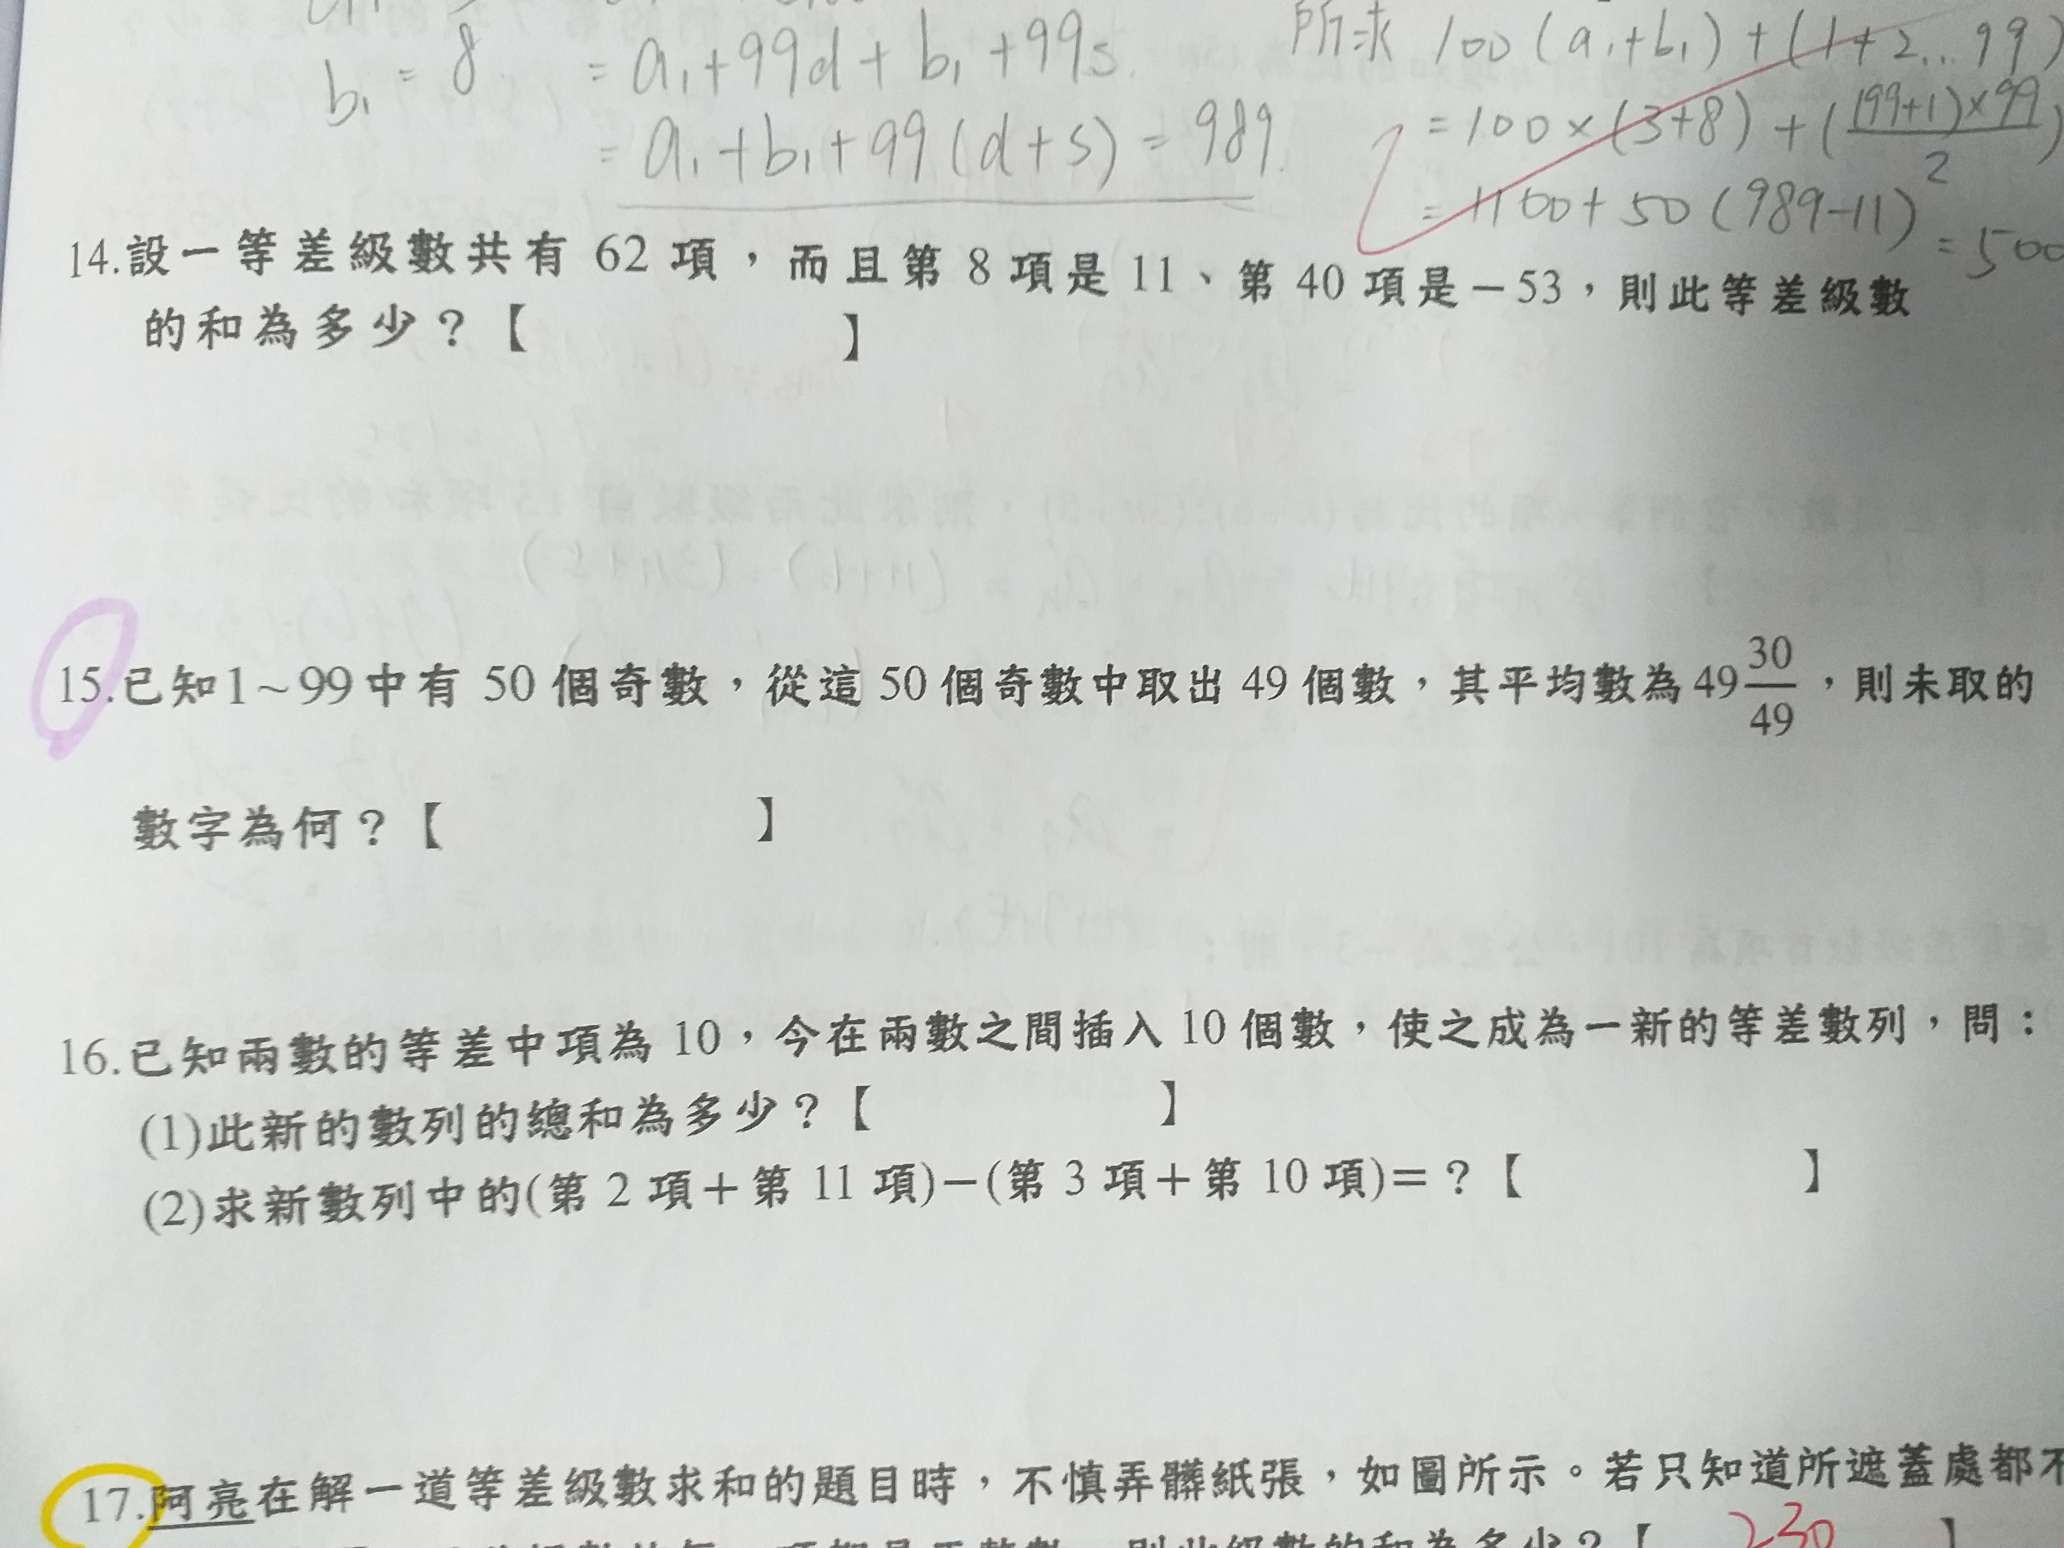 b₁ = 8 = a₁+99d+b₁+99s
= a₁+b₁+99(d+s) = 989
所求 100(a₁+b₁)+(1+2...99)
=100×(3+8)+((99+1)×99/2)
=1100+50(989-11)
=500
14.設一等差級數共有 62 項，而且第 8 項是 11、第 40 項是－53，則此等差級數
的和為多少？【 】
15.已知1~99中有 50 個奇數，從這 50 個奇數中取出 49 個數，其平均數為 49 30/49，則未取的
數字為何？【 】
16.已知兩數的等差中項為 10，今在兩數之間插入 10 個數，使之成為一新的等差數列，問：
(1)此新的數列的總和為多少？【 】
(2)求新數列中的(第 2 項＋第 11 項)－(第 3 項＋第 10 項)＝？【 】
17.阿亮在解一道等差級數求和的題目時，不慎弄髒紙張，如圖所示。若只知道所遮蓋處都不
則此級數的和為多少？【 230 】